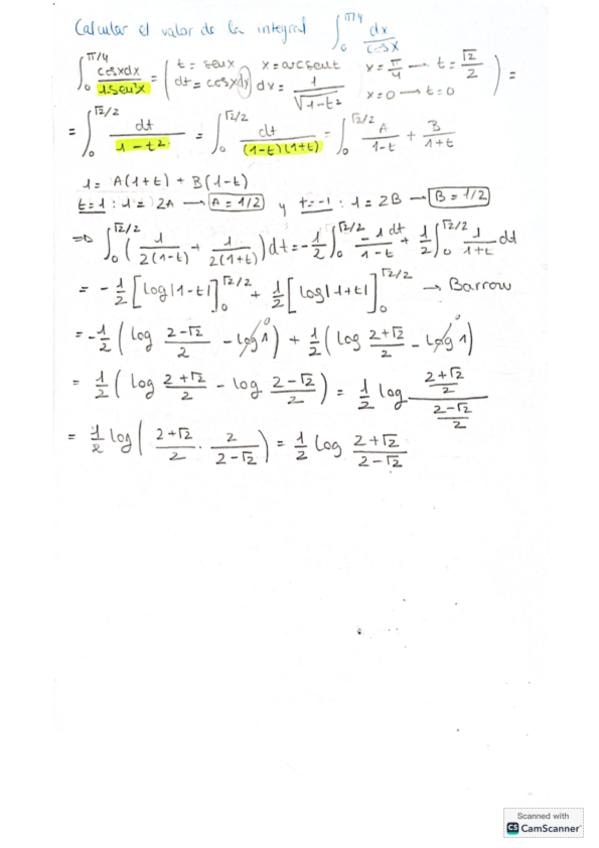 Calcular el valor de la integral ∫₀^{π/4} dx/cosx
∫₀^{π/4} cosxdx/1-sen²x = ( t = senx x = arcsent x = π/4 → t = √2/2
dt = cosxdx dx = 1/√(1-t²) x=0 → t=0 ) =
= ∫₀^{√2/2} dt/(1-t²) = ∫₀^{√2/2} dt/((1-t)(1+t)) = ∫₀^{√2/2} A/(1-t) + B/(1+t)
1 = A(1+t) + B(1-t)
t=1 : 1 = 2A → A = 1/2 y t=-1 : 1 = 2B → B = 1/2
⇒ ∫₀^{√2/2} ( 1/(2(1-t)) + 1/(2(1+t)) ) dt = -1/2 ∫₀^{√2/2} -1/(1-t) dt + 1/2 ∫₀^{√2/2} 1/(1+t) dt
= -1/2 [log|1-t|]₀^{√2/2} + 1/2 [log|1+t|]₀^{√2/2} → Barrow
= -1/2 ( log (2-√2)/2 - log 1 ⁰ ) + 1/2 ( log (2+√2)/2 - log 1 ⁰ )
= 1/2 ( log (2+√2)/2 - log (2-√2)/2 ) = 1/2 log ((2+√2)/2)/((2-√2)/2)
= 1/2 log ( (2+√2)/2 · 2/(2-√2) ) = 1/2 log (2+√2)/(2-√2)
Scanned with
CS CamScanner